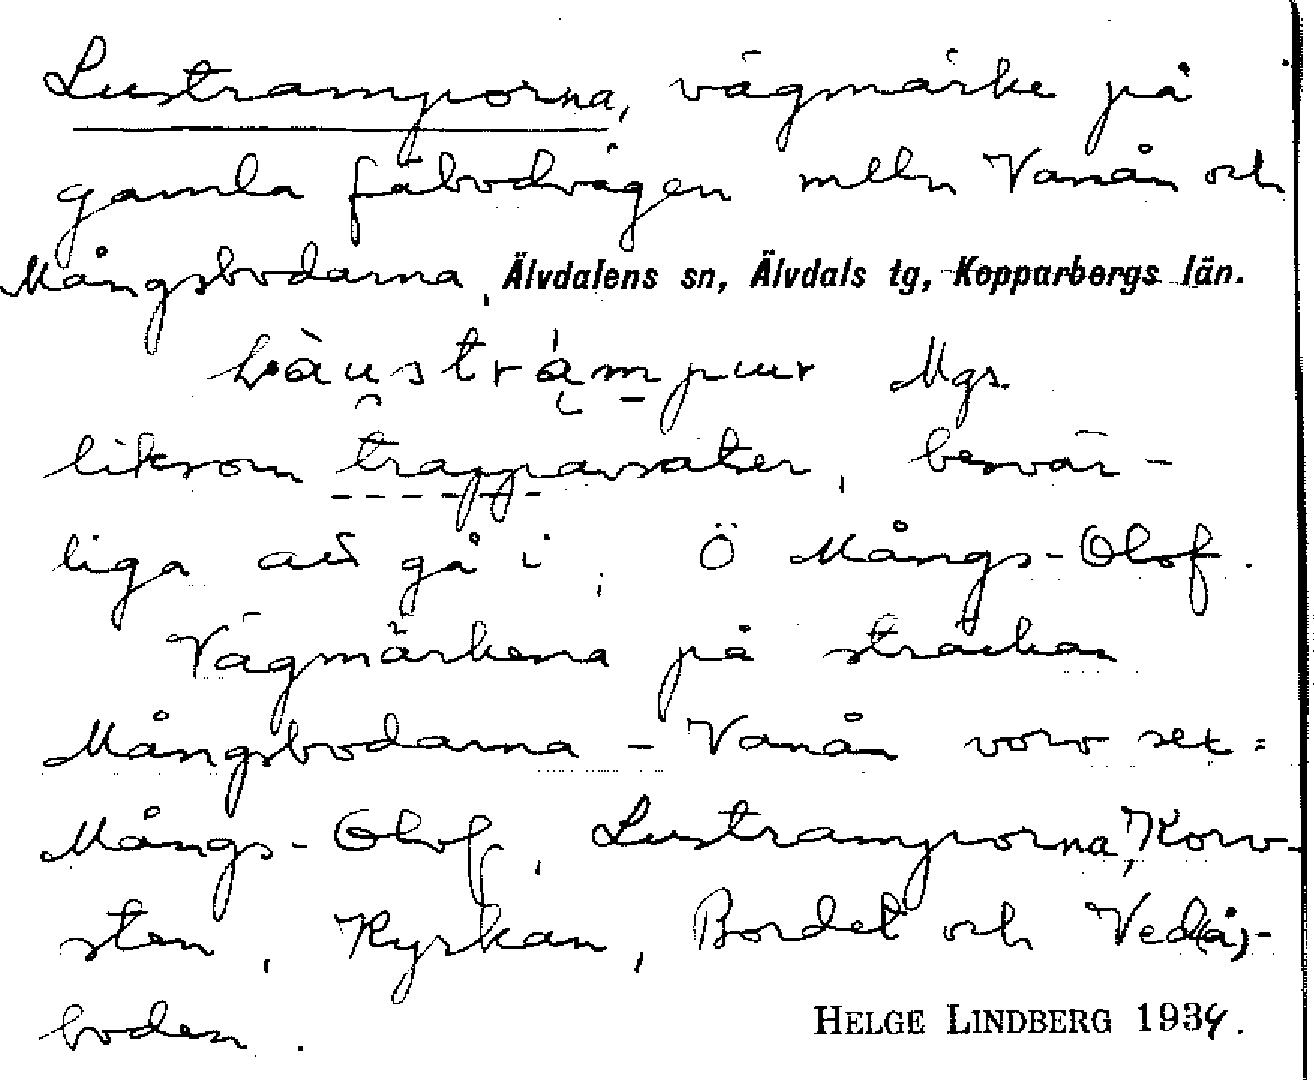 Lustramporna, vägmärke på
gamla fäbodvägen melln Vanån och
Mångsbodarna, Älvdalens sn, Älvdals tg, Kopparbergs län.
Mgs.
liksom trappavsatser, besvär-
liga att gå i, Ö Mångs-Olof.
Vägmärkena på sträckan
Mångsbodarna – Vanån voro sex:
Mångs-Olof, Lustramporna, Korv-
sten, Kyrkan, Bordet och Ved(å)-
boden.
HELGE LINDBERG 1934.